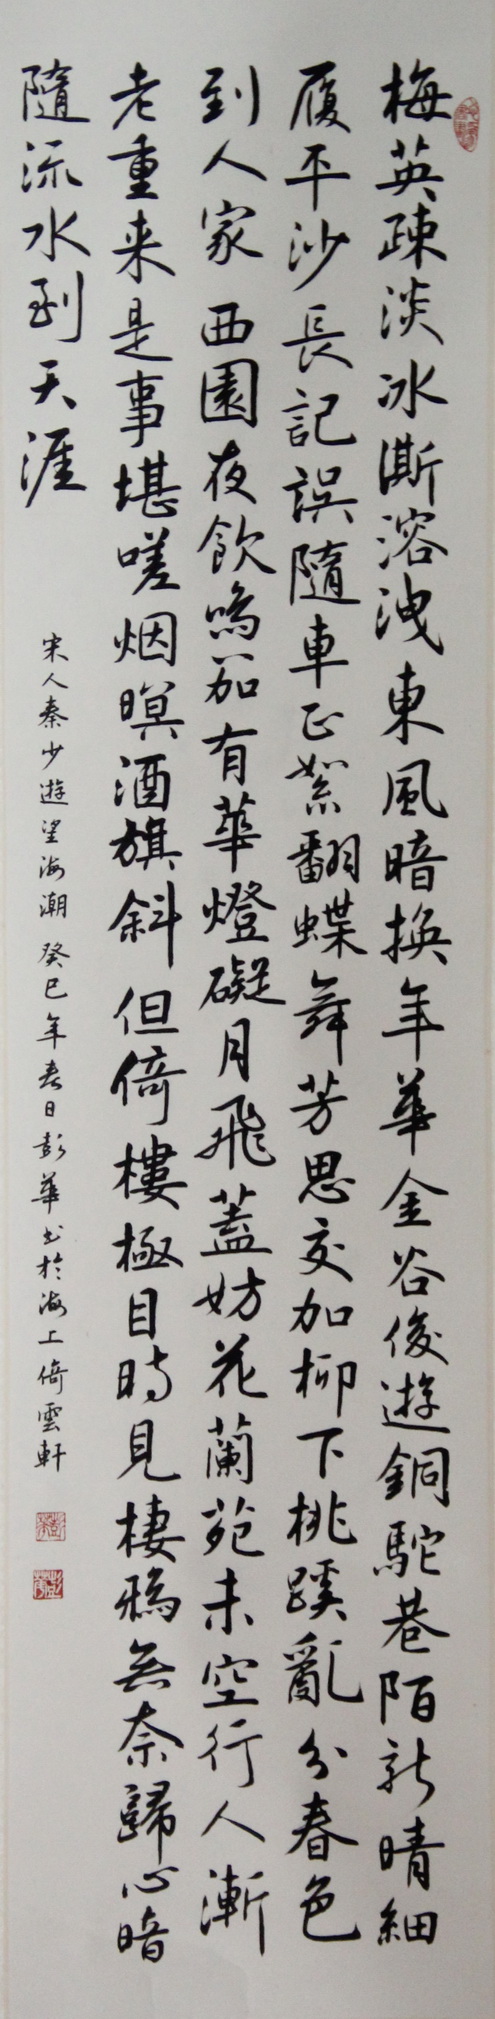 梅英疎淡冰澌溶洩東風暗換年華金谷俊遊銅駝巷陌新晴細
履平沙長記誤隨車正絮翻蝶舞芳思交加柳下桃蹊亂分春色
到人家西園夜飲鳴笳有華燈礙月飛蓋妨花蘭苑未空行人漸
老重来是事堪嗟烟暝酒旗斜但倚樓極目時見棲鴉無奈歸心暗
隨流水到天涯
宋人秦少遊望海潮癸巳年春日彭華书於海上倚雲軒